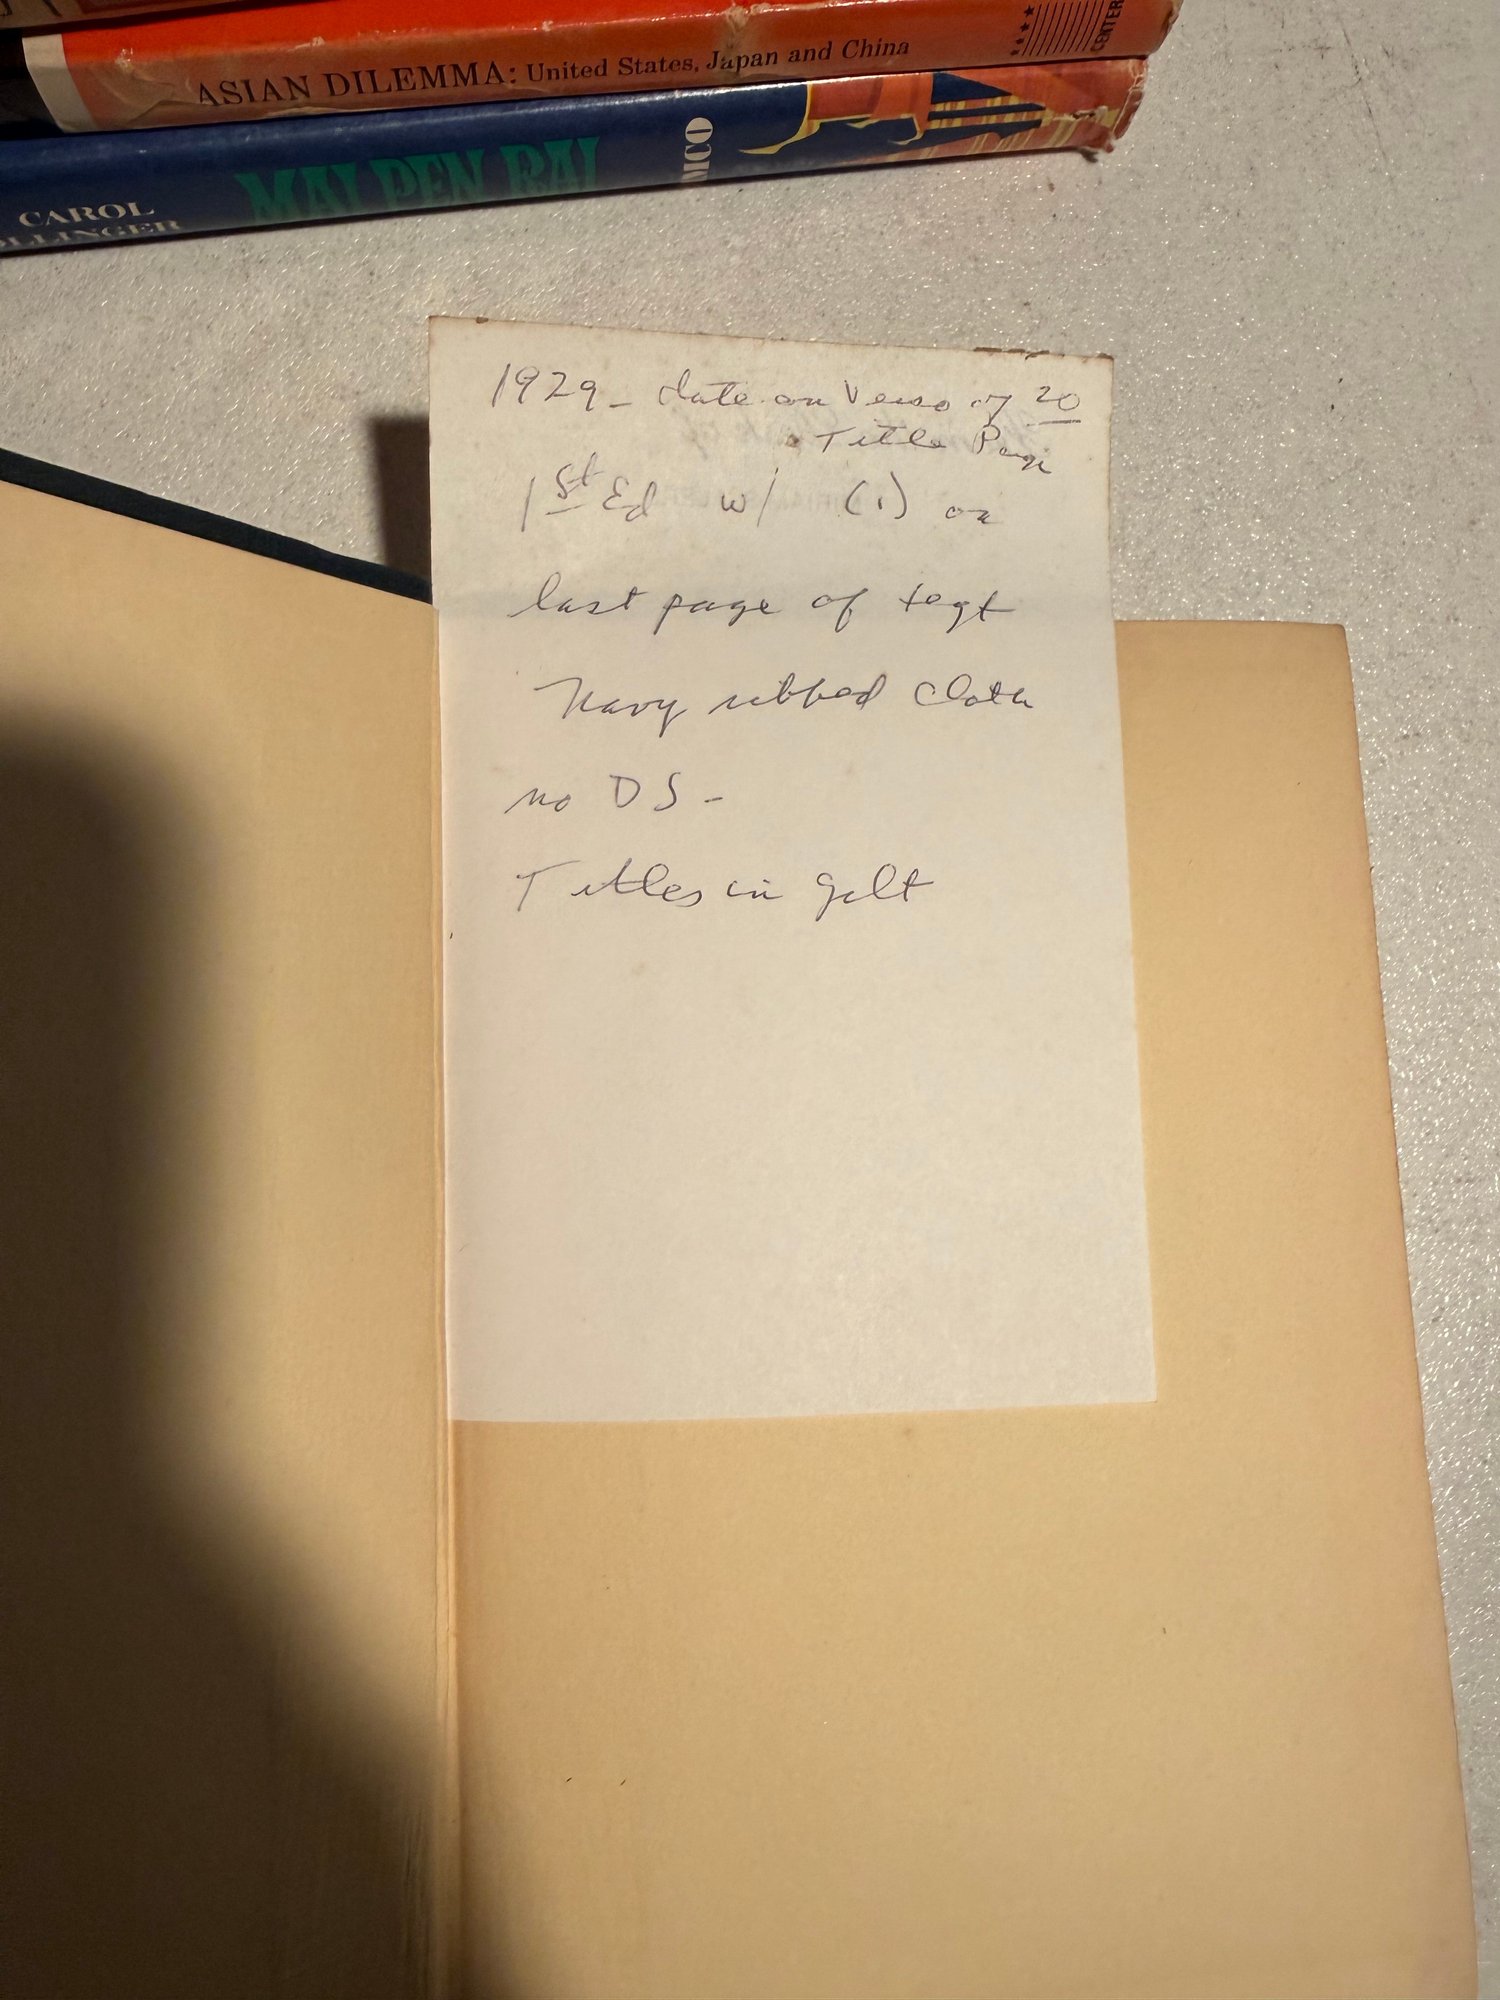 ASIAN DILEMMA: United States, Japan and China
CENTER
CAROL
OLLINGER
MAI PEN RAI
MCO
1929 - date on Verso of 20
Title Page
1st Ed w/ (1) on
last page of text
Navy ribbed cloth
no DJ -
Titles in gilt